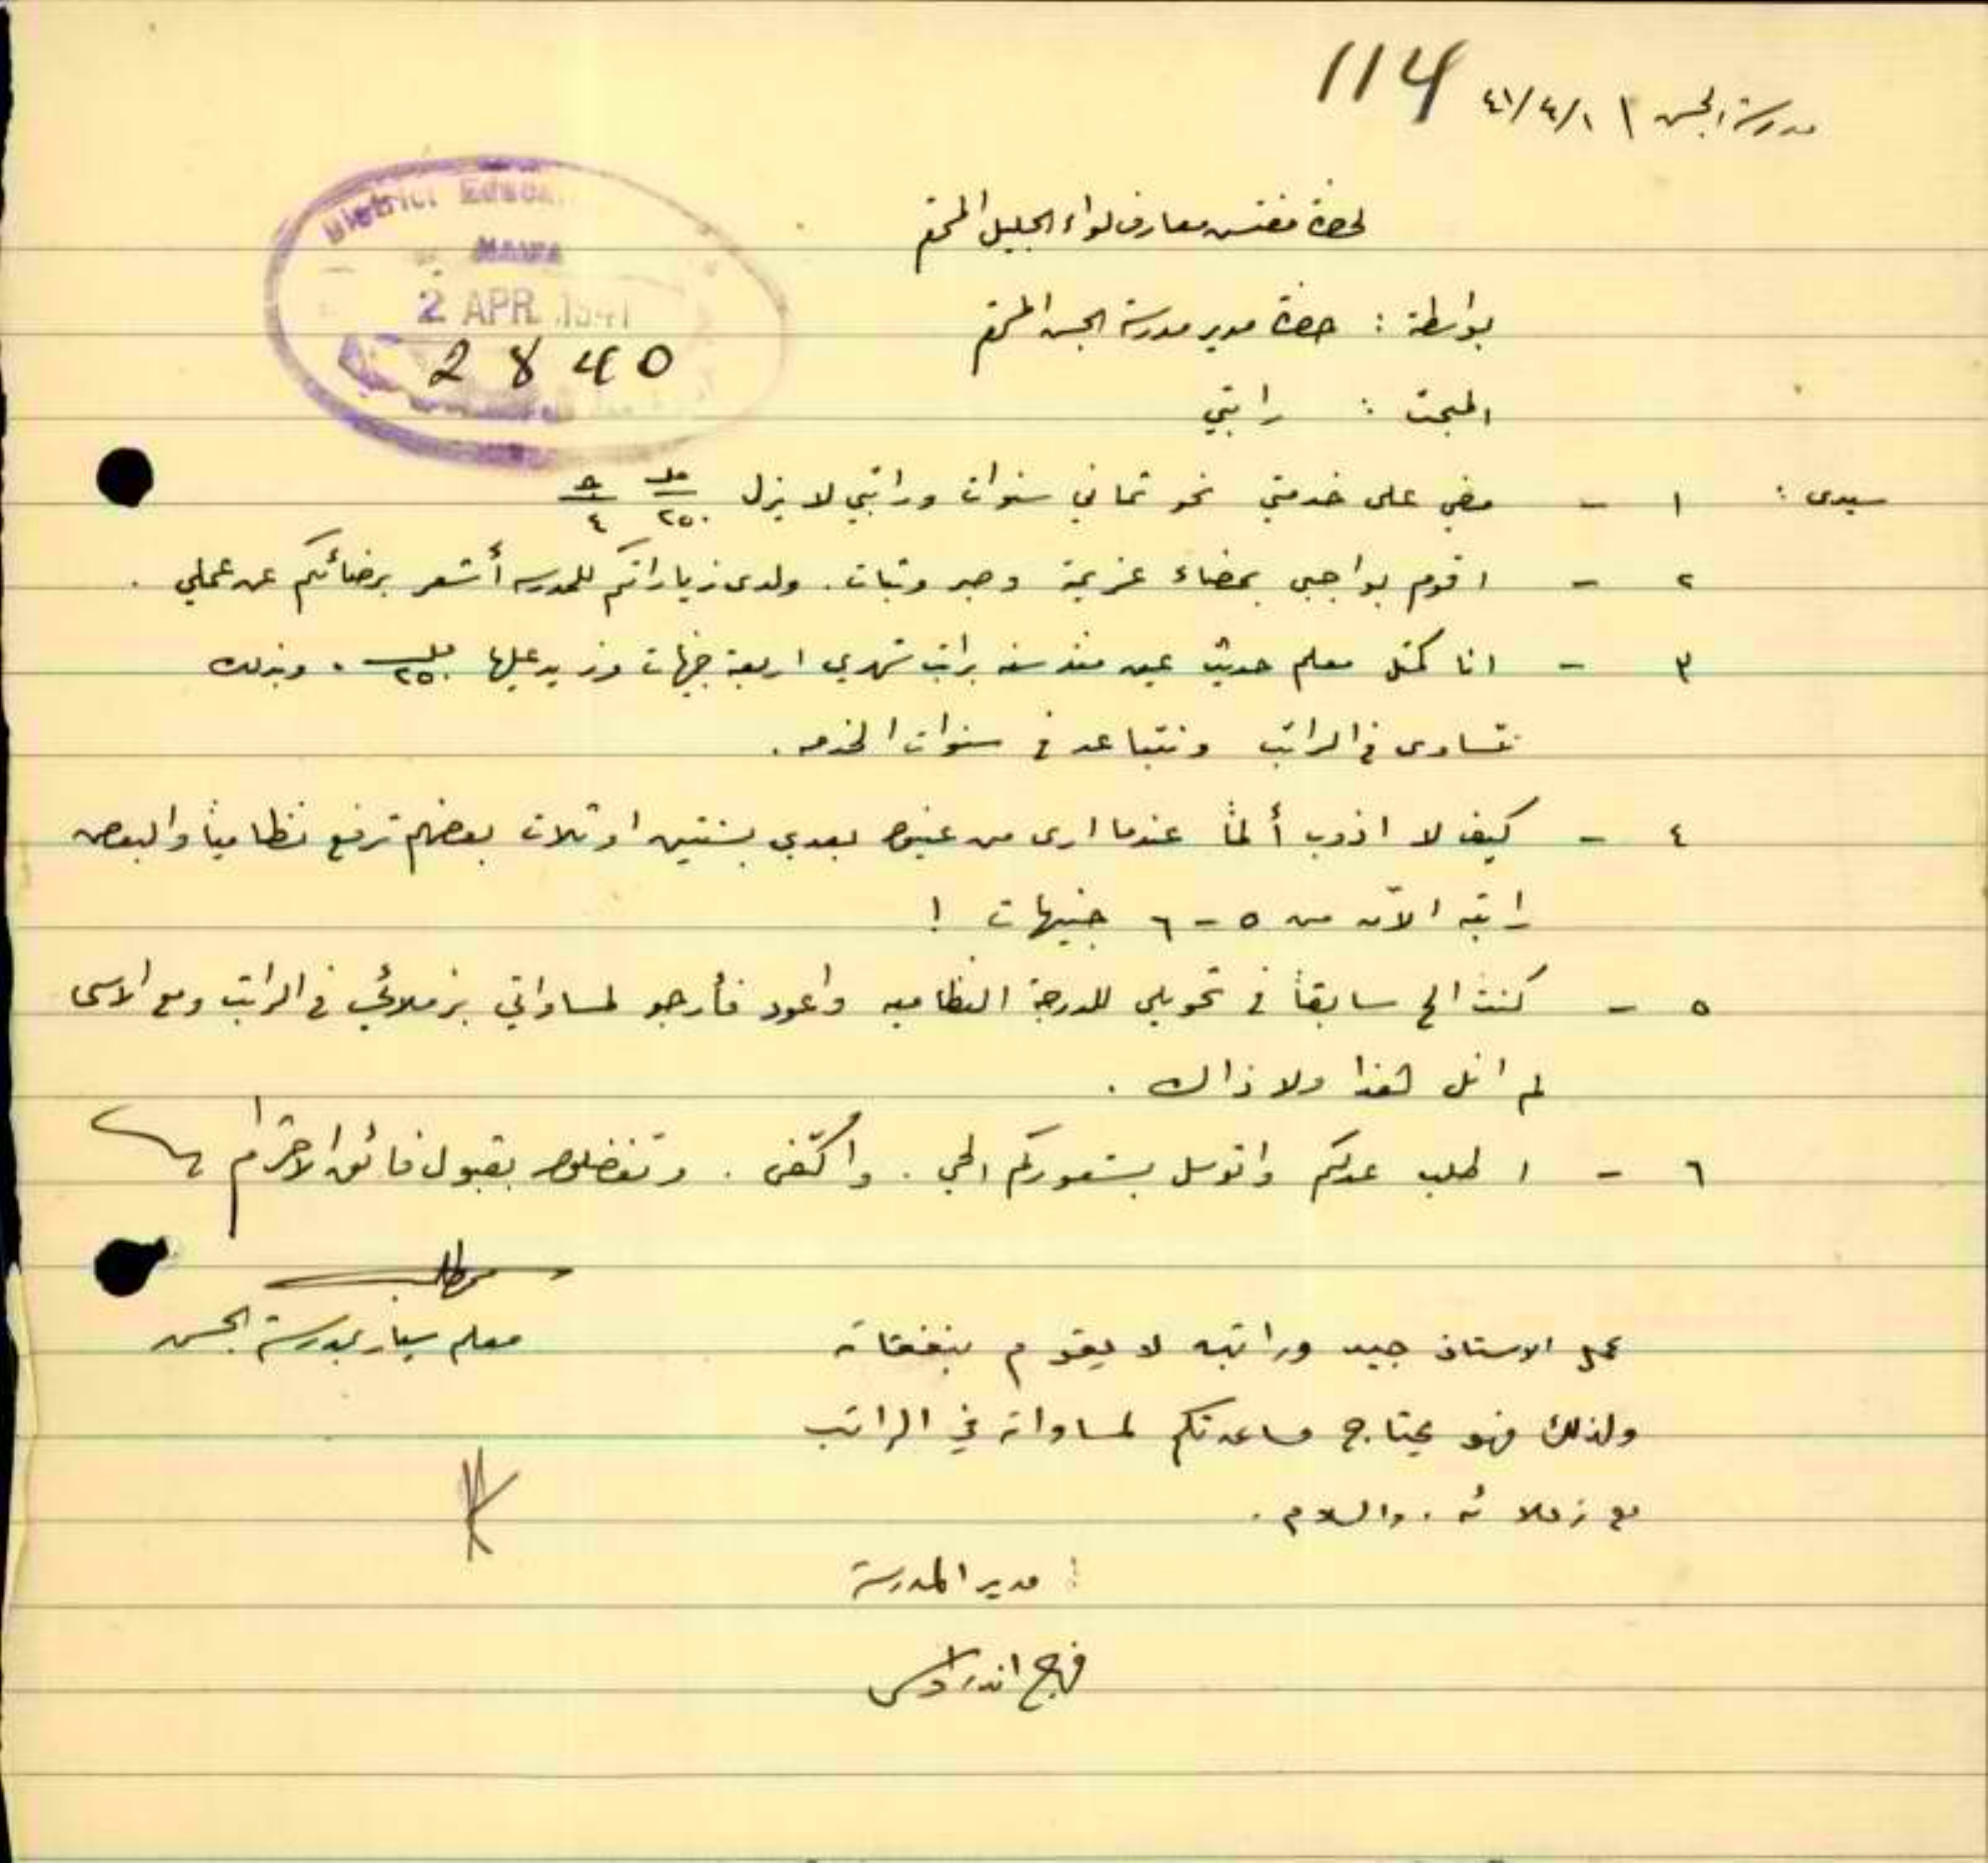 مدرسة الجش ١/٤/٤١
114
District Educa
HAIFA
2 APR 1941
2840
لحضرة مفتش معارف لواء الجليل المحترم
بواسطة : حضرة مدير مدرسة الجش المحترم
المبحث : راتبي
سيدى : ١ - مضى على خدمتي نحو ثماني سنوات وراتبي لا يزل ٢٥٠ مل ٤ ج
٢ - اقوم بواجبي بمضاء عزيمة وصبر وثبات. ولدى زياراتكم للمدرسه أشعر برضائكم عن عملي .
٣ - انا كمثل معلم حديث عين منذ سنه براتب شهري اربعة جنيهات وزيد عليها ٢٥٠ مل . وبذلك
نتساوى في الراتب ونتباعد في سنوات الخدمه .
٤ - كيف لا اذوب ألماً عندما ارى من عينوا بعدي بسنتين او ثلاث بعضهم ترفع نظامياً والبعض
راتبه الآن من ٥ - ٦ جنيهات !
٥ - كنت الح سابقاً في تحويلي للدرجة النظاميه واعود فأرجو لمساواتي بزملائي في الراتب ومع الاسى
لم انل هذا ولا ذاك .
٦ - اطلب عدلكم واتوسل بشعوركم الحي . واكتفى . وتفضلوا بقبول فائق الاحترام
معلم سيار بمدرسة الجش
عمل الاستاذ جيد وراتبه لا يقوم بنفقاته
ولذلك فهو يحتاج مساعدتكم لمساواته في الراتب
مع زملائه . والسلام .
مدير المدرسة
فرج اندراوس